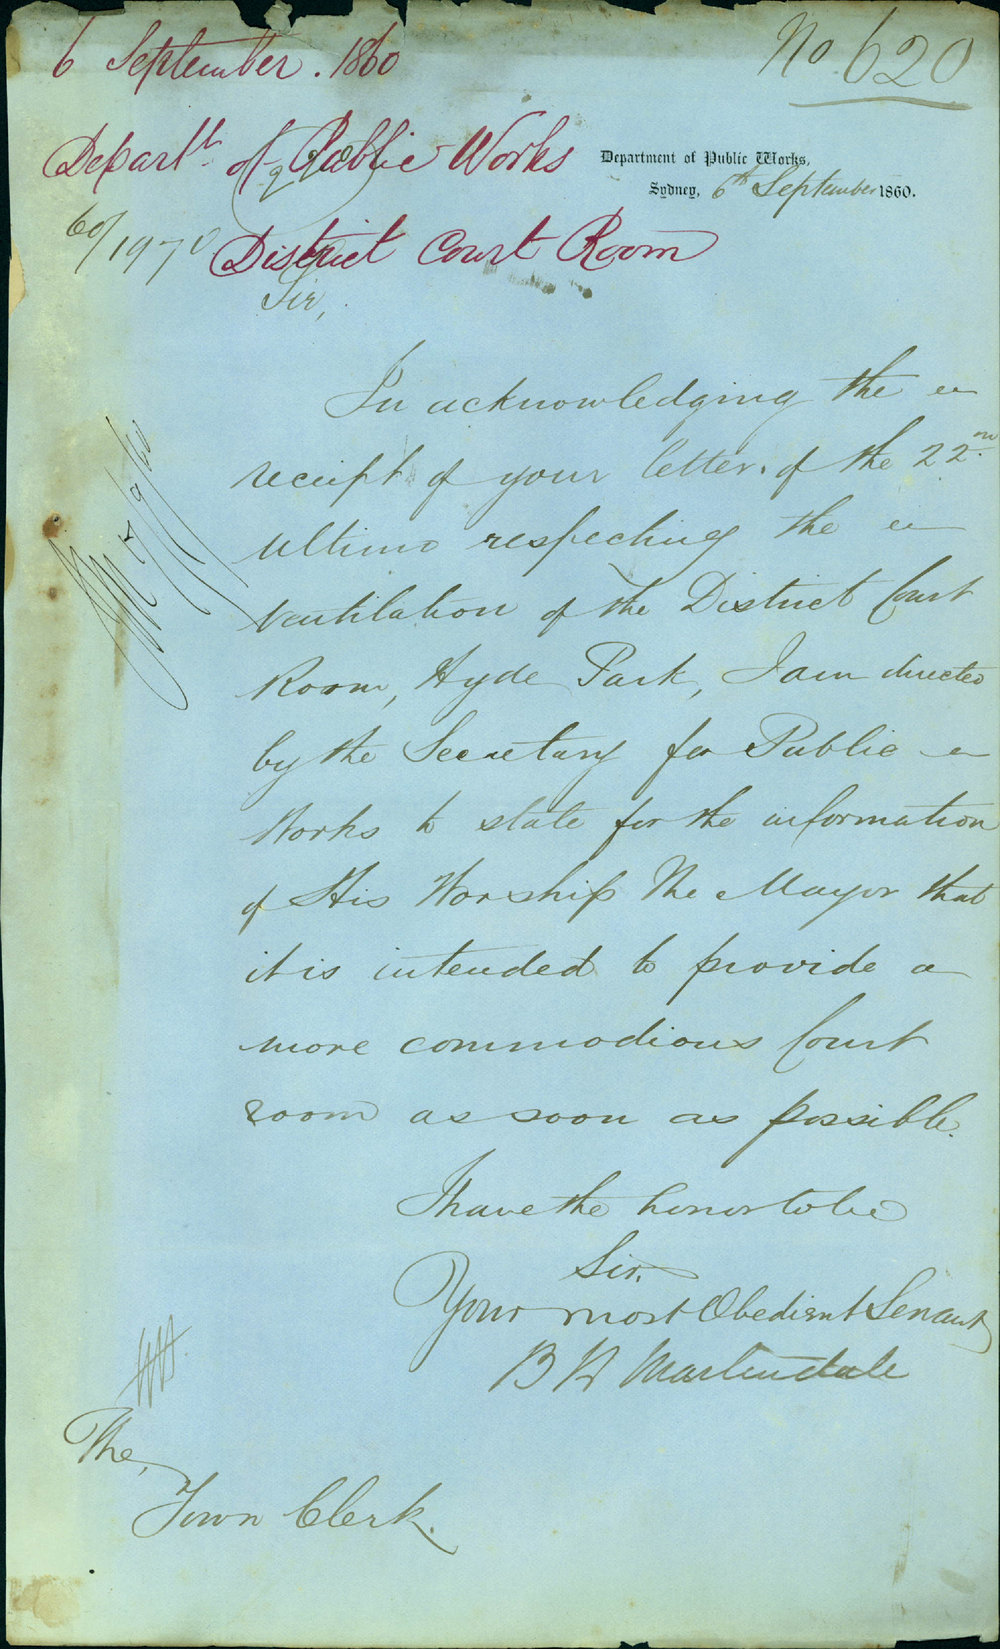 6 September. 1860
No 620
Departt. of Public Works
Department of Public Works,
Sydney, 6th September 1860.
60/1970
District Court Room
Sir,
In acknowledging the
receipt of your letter of the 22nd
ultimo respecting the
ventilation of the District Court
Room, Hyde Park, I am directed
by the Secretary for Public
Works to state for the information
of His Worship The Mayor that
it is intended to provide a
more commodious Court
room as soon as possible.
I have the honor to be
Sir,
Your most Obedient Servant
B H Martindale
The,
Town Clerk.